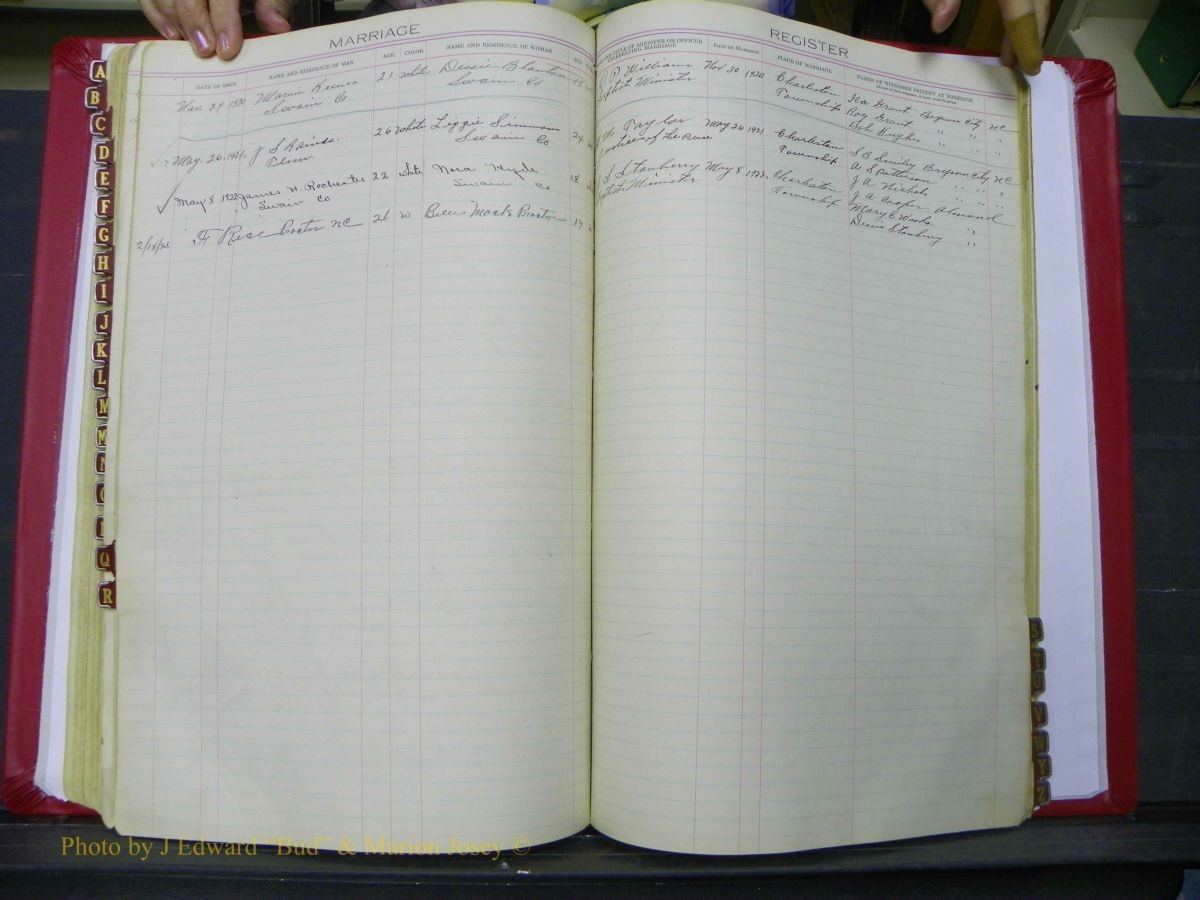 MARRIAGE
REGISTER
DATE OF ISSUE
NAME AND RESIDENCE OF MAN
AGE
COLOR
NAME AND RESIDENCE OF WOMAN
AGE
TITLE OF MINISTER OR OFFICER
CELEBRATING MARRIAGE
DATE OF MARRIAGE
PLACE OF MARRIAGE
NAMES OF WITNESSES PRESENT AT MARRIAGE
29 1920
21 white Dessie
Swain Co
Swain Co
Williams Nov 30 1920 Charleston
Minister
Township
Ira Grant Bryson City NC
Roy Grant " " "
Hughes " " "
May. 26, 1921, J S Rains 26 white Lizzie Simmons 24
Tenn.
Swain Co
Taylor May 26 1921 Charleston
of the Peace
Township
S B Smiley Bryson City NC
A S Patterson " " "
J A Nichols " " "
May 8 1922 James H. Rochester 22 white Nora Hyde 18
Swain Co
Swain Co
S Stanberry May 8 1922 Charleston
Minister
Township
J A Cooper Almond
Mary C Woods "
Dessie Stanberry "
Rose Proctor NC 26 W 19
A
B
C
D
E
F
G
H
I
J
K
L
M
N
Q
R
S
T
U
V
W
Y
Z
Photo by J Edward "Bud" & Marion Josey ©